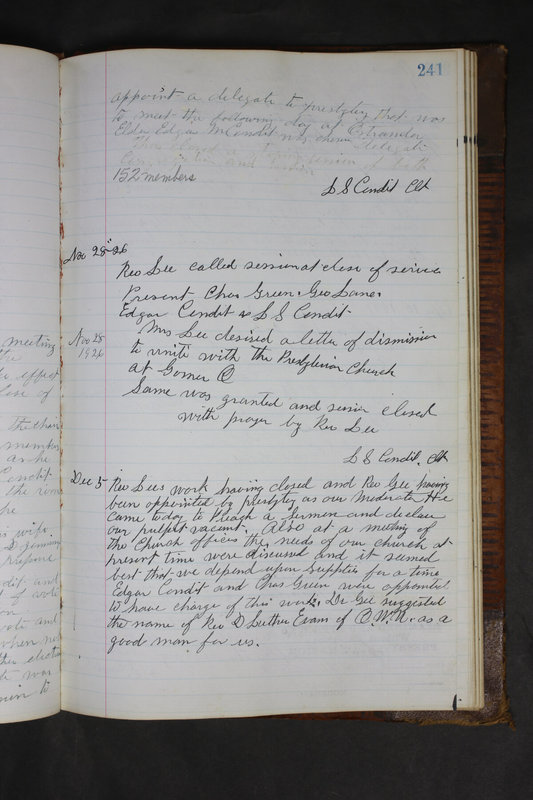 241
appoint a delegate to presbytery that was
to meet the following day at
Elder Edgar M Condit
152 members
L S Condit Clk
Nov 28-26
Rev Lee called session at close of service
Present Chas Green. Geo Lane.
Edgar Condit & L S Condit
Nov 28
1926
Mrs Lee desired a letter of dismission
to unite with the Presbyterian Church
at Gomer O
Same was granted and session closed
with prayer by Rev Lee
L S Condit, Clk
Dec 5 Rev Lees work having closed and Rev Gee having
been oppointed by presbytery as our Moderator He
came today to preach a sermon and declare
our pulpit vacant. Also at a meeting of
the Church offices the needs of our church at
present time were discussed and it seemed
best that we depend upon supplies for a time
Edgar Condit and Chas Green were appointed
to have charge of this work. Dr Gee suggested
the name of Rev D Luther Evans of O. W. U. as a
good man for us.
meeting
effect
close of
members
as he
Condit
the
he
wife
and
vote
when not
the election
was
to